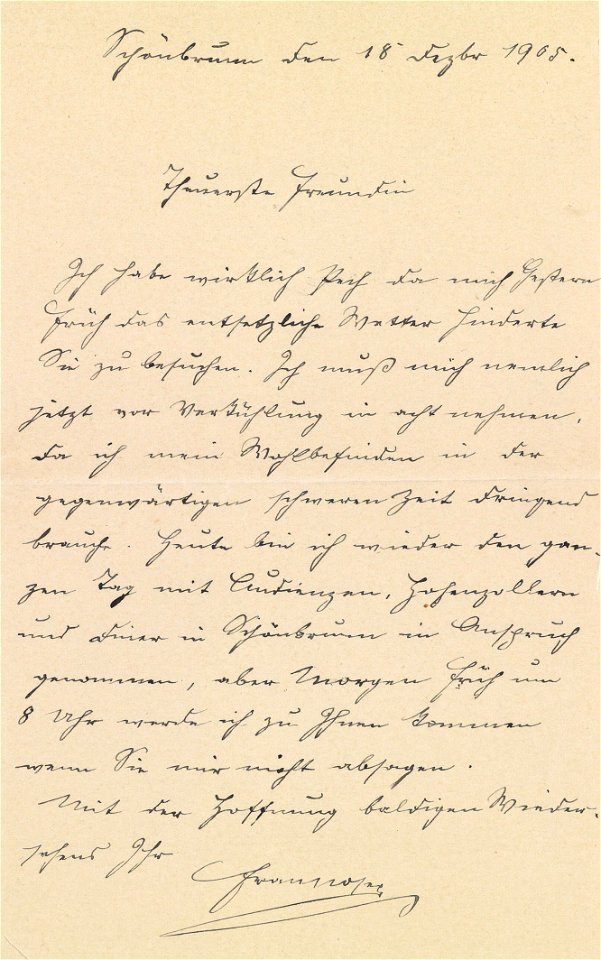 Schönbrunn den 18 Dezbr 1905.
Theuerste Freundin
Ich habe wirklich Pech da mich Gestern
früh das entsetzliche Wetter hinderte
Sie zu besuchen. Ich muß mich nemlich
jetzt vor Verkühlung in acht nehmen,
da ich mein Wohlbefinden in der
gegenwärtigen schweren Zeit dringend
brauche. Heute bin ich wieder den gan-
zen Tag mit Audienzen, Hohenzollern
und Diner in Schönbrunn in Anspruch
genommen, aber Morgen früh um
8 Uhr werde ich zu Ihnen kommen
wenn Sie mir nicht absagen.
Mit der Hoffnung baldigen Wieder-
sehens Ihr
Franz Josef